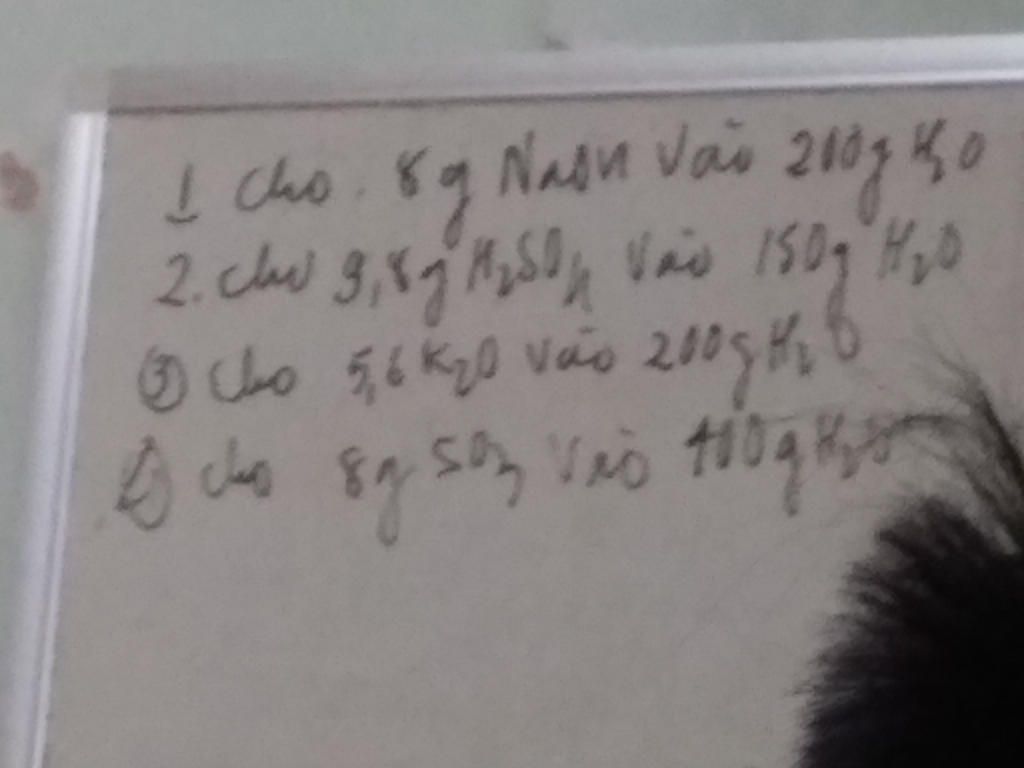 1 cho. 8g NaOH vào 200g H₂O
2. cho 9,8g H₂SO₄ vào 150g H₂O
③ cho 5,6 K₂O vào 200g H₂O
④ cho 8g SO₃ vào 400g H₂O